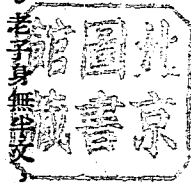 北京
圖書
館藏
老子身無半文、